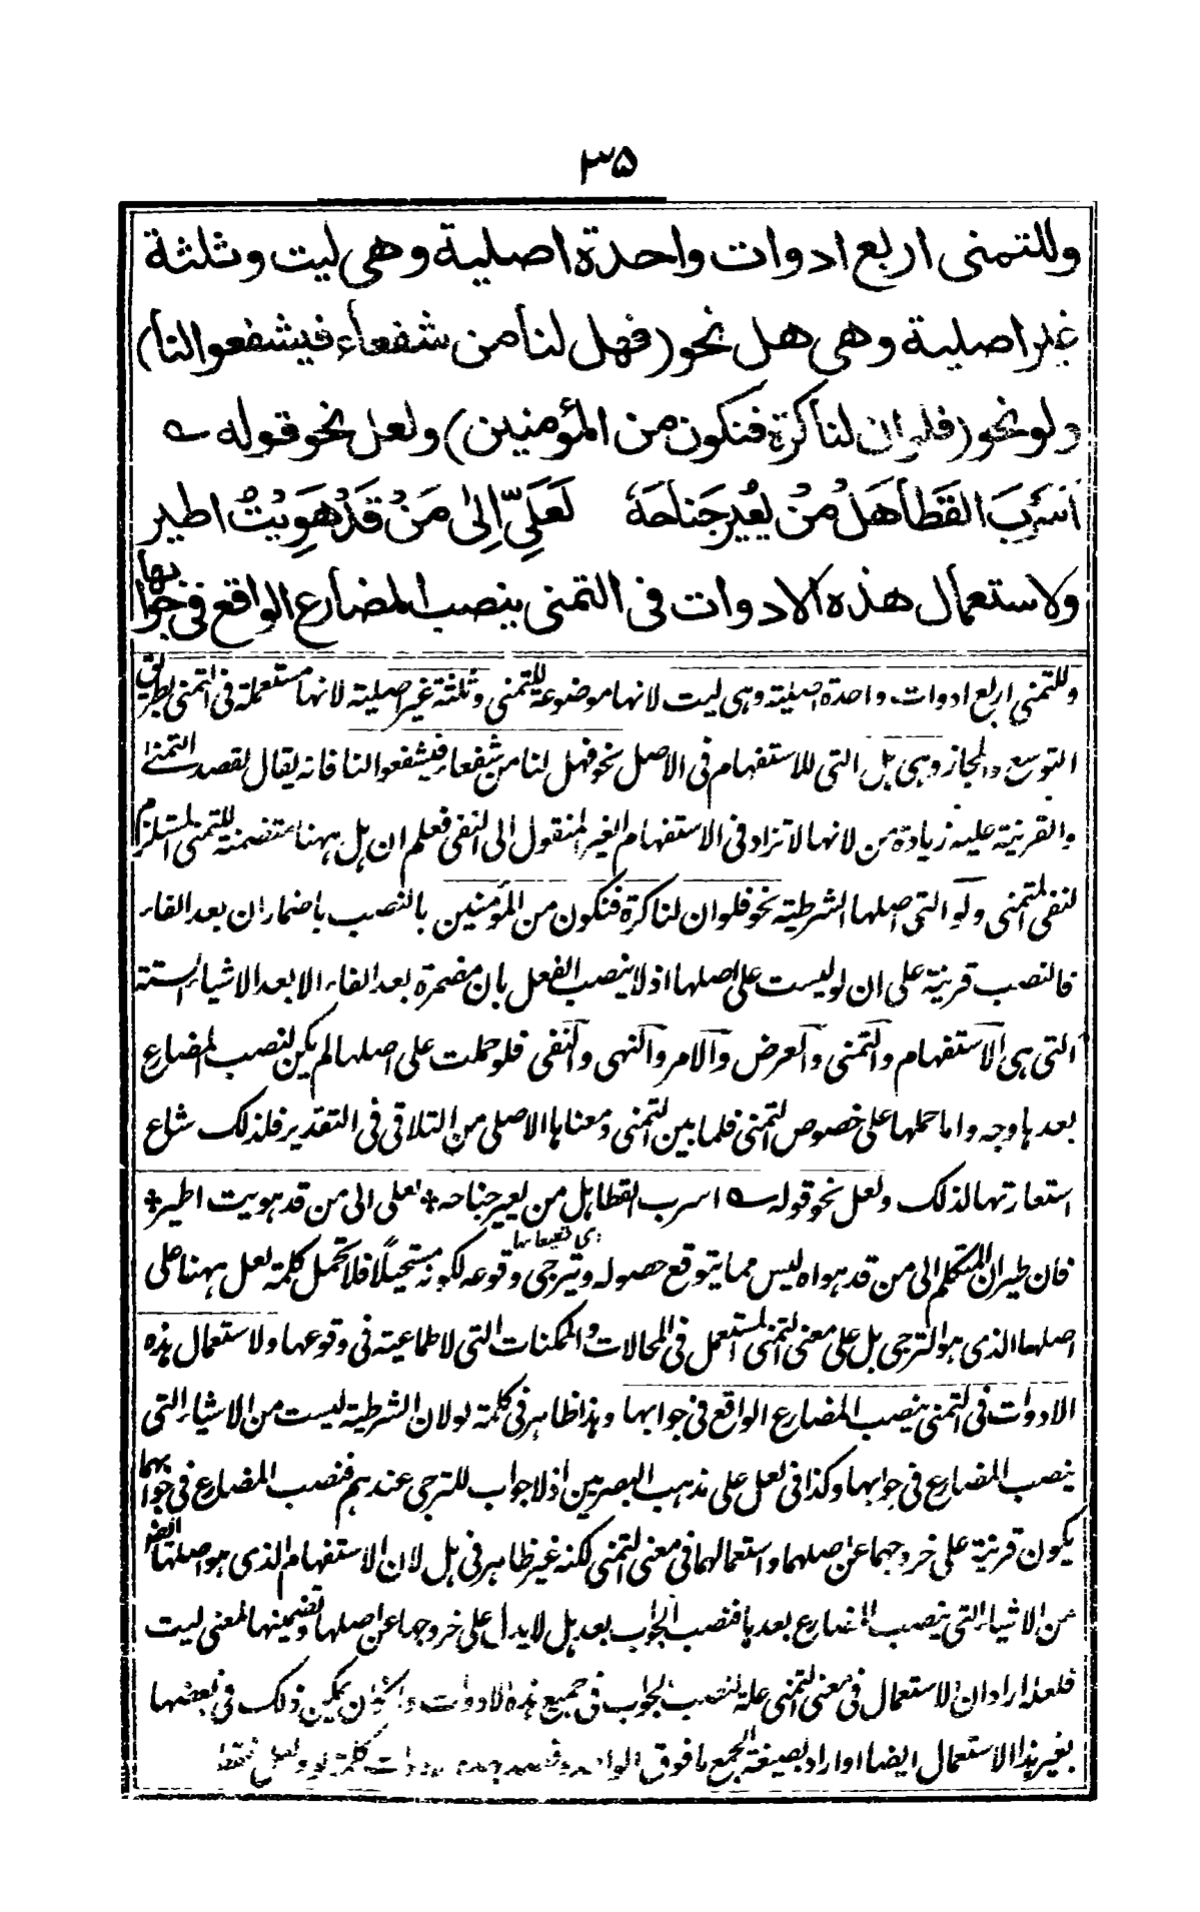 ۳۵
وللتمنى اربع ادوات واحدة اصلية وهى ليت وثلثة
غير اصلية وهى هل نحو (فهل لنا من شفعاء فيشفعوا لنا)
ولو نحو (فلو ان لنا كرة فنكون من المؤمنين) ولعل نحو قوله ؎
أَسِرْبَ القَطَا هَلْ مَنْ يُعِيرُ جَنَاحَهُ لَعَلِّىْ اِلىٰ مَنْ قَدْ هَوِيْتُ اطير
ولاستعمال هذه الادوات فى التمنى ينصب المضارع الواقع فى جوابها
وللتمنى اربع ادوات واحدة اصلية وهى ليت لانها موضوعة للتمنى وثلثة غير اصلية لانها مستعملة فى التمنى بطريق
التوسع والمجاز وهى هل التى للاستفهام فى الاصل نحو فهل لنا من شفعاء فيشفعوا لنا فانه يقال لقصد التمنى
والقرينة عليه زيادة من لانها لا تزاد فى الاستفهام الغير المنقول الى النفى فعلم ان هل ههنا متضمنة للتمنى المستلزم
لنفى المتمنى ولو التى اصلها الشرطية نحو فلو ان لنا كرة فنكون من المؤمنين بالنصب باضمار ان بعد الفاء
فالنصب قرينة على ان لو ليست على اصلها اذ لا ينصب الفعل بان مضمرة بعد الفاء الا بعد الاشياء الستة
التى هى الاستفهام والتمنى والعرض والامر والنهى والنفى فلو حملت على اصلها لم يكن لنصب المضارع
بعدها وجه واما حملها على خصوص التمنى فلما بين التمنى ومعناها الاصلى من التلاقى فى التقدير فلذلك شاع
استعارتها لذلك ولعل نحو قوله ؎ اسرب القطا هل من يعير جناحه ٭ لعلى الى من قد هويت اطير ٭
فان طيران المتكلم الى من قد هواه ليس مما يتوقع حصوله ويترجى وقوعه لكونه مستحيلًا فلا تحمل كلمة لعل ههنا على
اصلها الذى هو الترجى بل على معنى التمنى المستعمل فى المحالات والممكنات التى لا طماعية فى وقوعها ولاستعمال هذه
الادوات فى التمنى ينصب المضارع الواقع فى جوابها وهذا ظاهر فى كلمة لو لان الشرطية ليست من الاشياء التى
ينصب المضارع فى جوابها وكذا فى لعل على مذهب البصريين اذ لا جواب للترجى عندهم فنصب المضارع فى جوابهما
يكون قرينة على خروجهما عن اصلهما واستعمالهما فى معنى التمنى لكنه غير ظاهر فى هل لان الاستفهام الذى هو اصلها ايضا
من الاشياء التى ينصب المضارع بعدها فنصب الجواب بعد هل لا يدل على خروجها عن اصلها وتضمينها لمعنى ليت
فلعله اراد ان الاستعمال فى معنى التمنى علة لنصب الجواب فى جميع هذه الادوات وان يكن ذلك فى بعضها
بغير هذا الاستعمال ايضا او اراد بصيغة الجمع ما فوق الواحد كلمة لو ولعل فقط